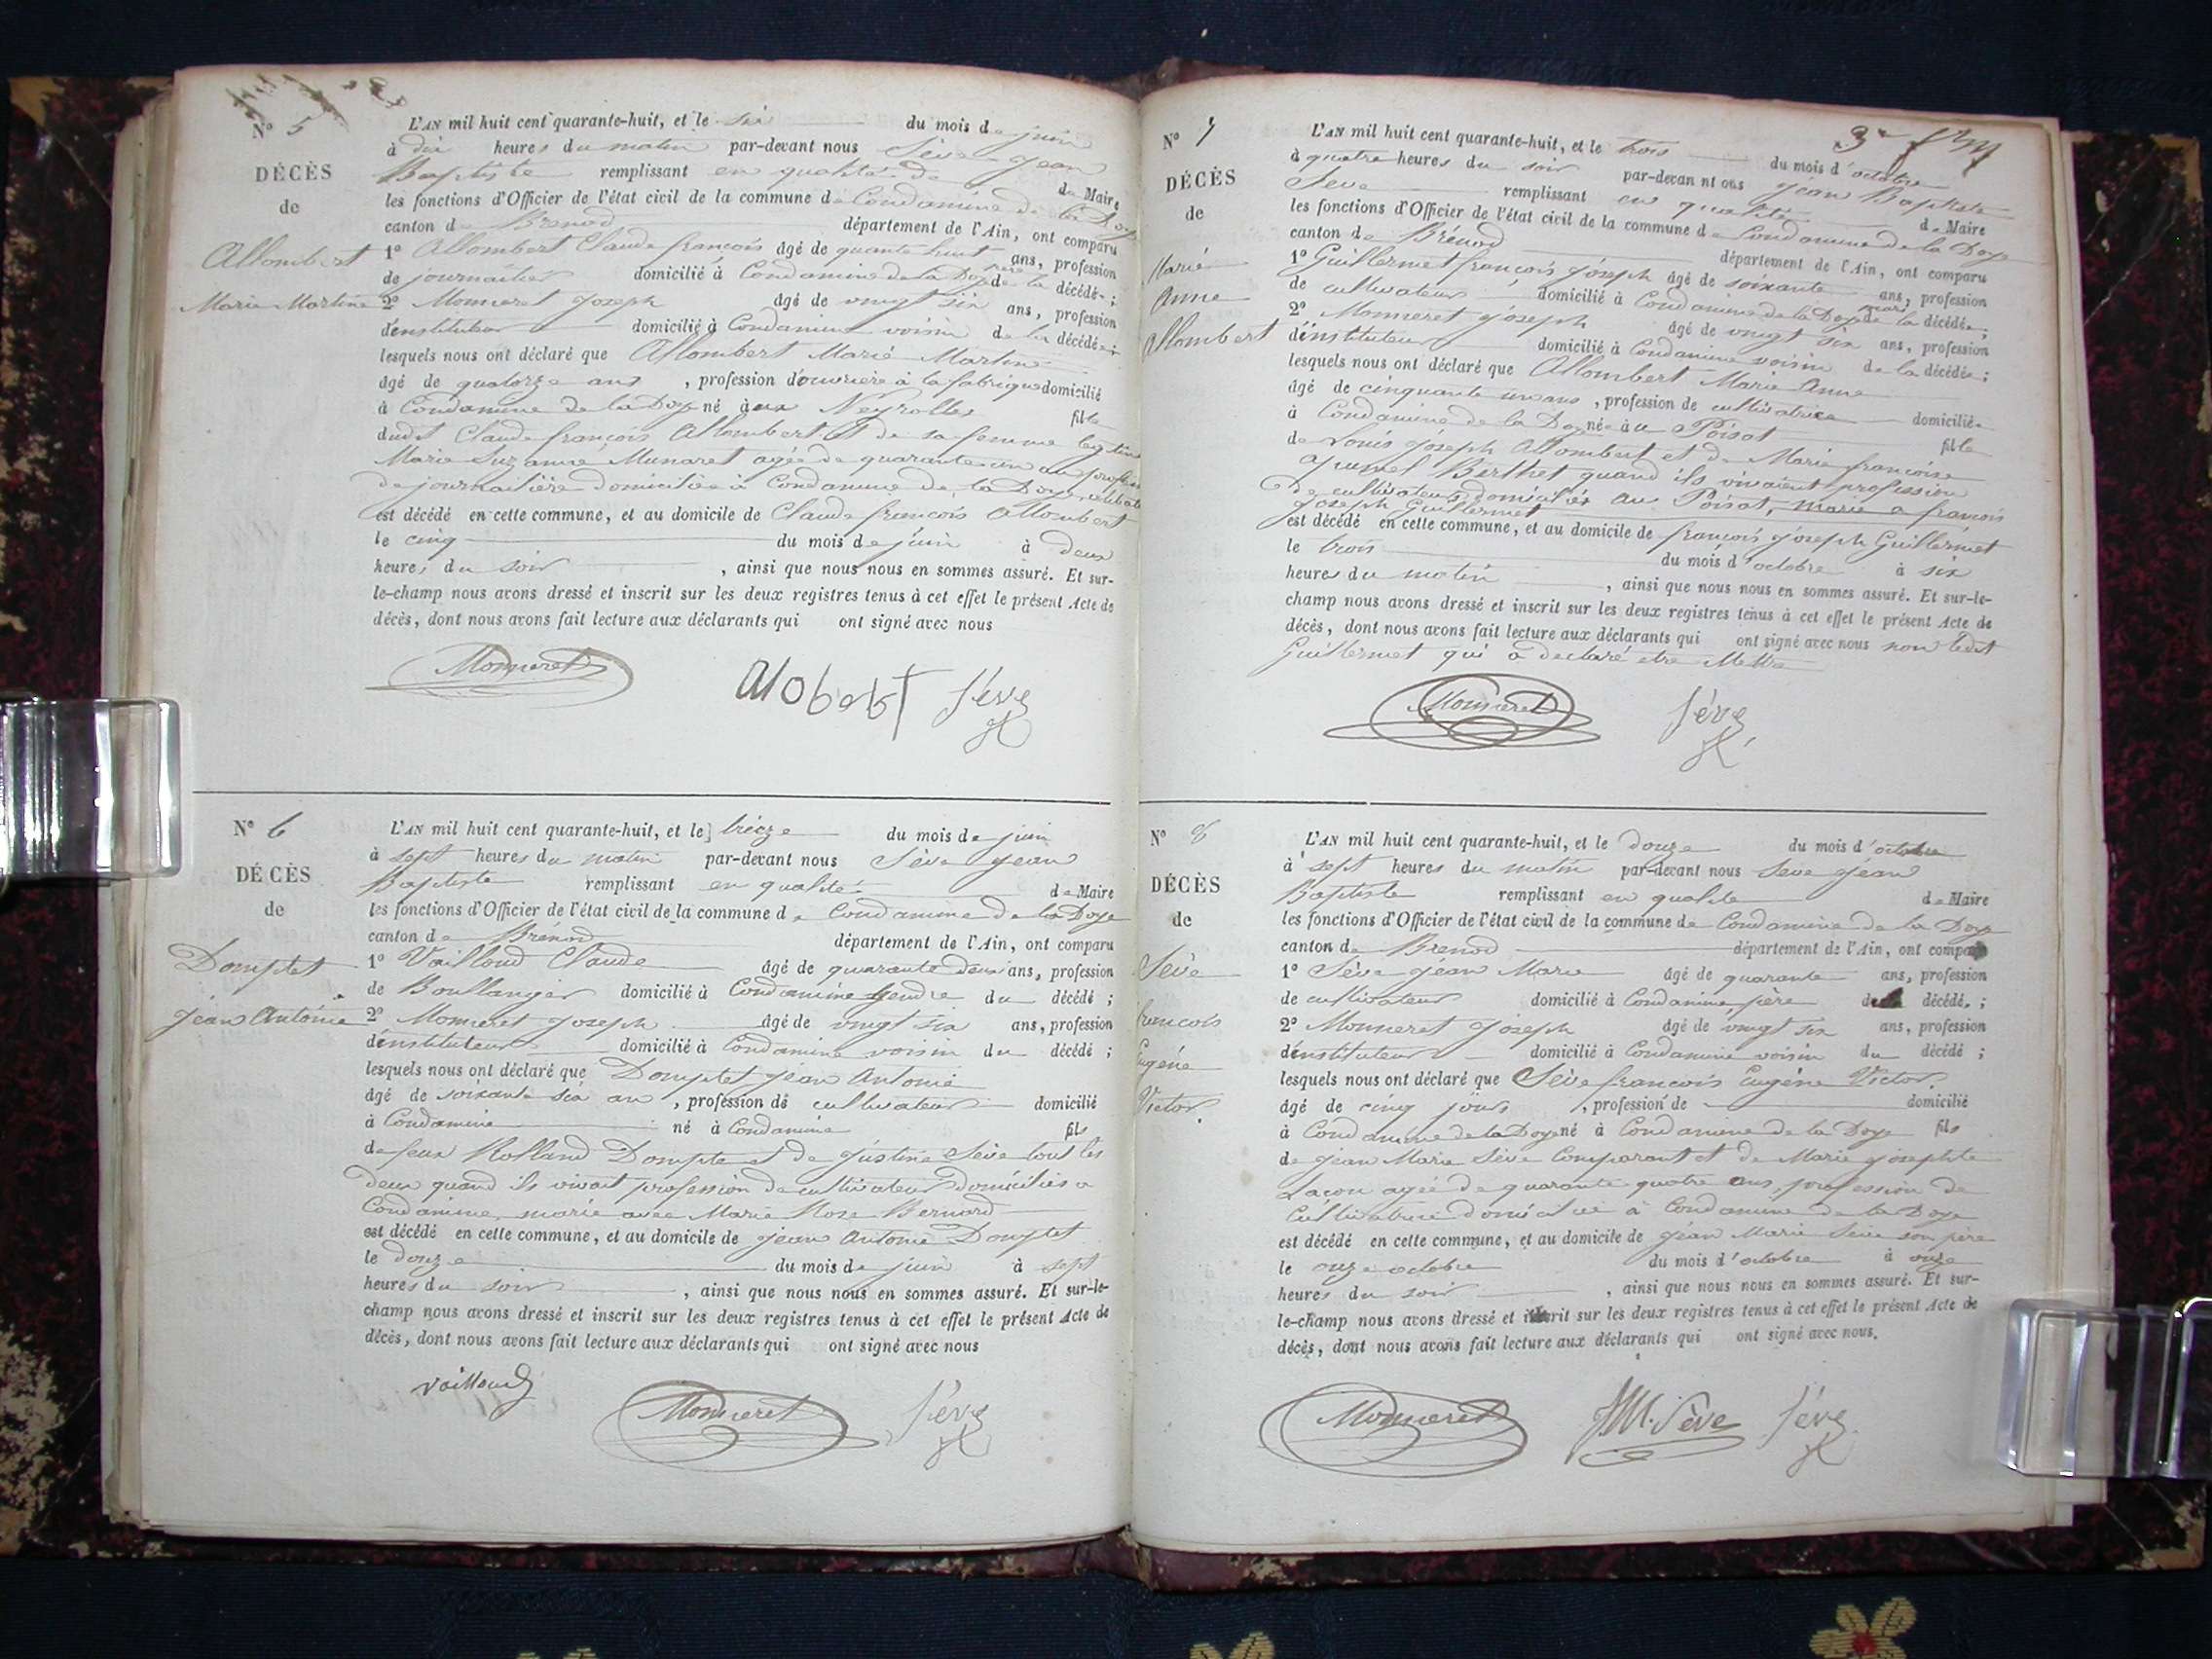 N° 5
DÉCÈS
de
Allombert
Marie Martine
L'AN mil huit cent quarante-huit, et le six du mois de juin
à dix heures du matin par-devant nous Sève Jean
Baptiste remplissant en qualité de de Maire
les fonctions d'Officier de l'état civil de la commune de Condamine de la Doye
canton de Brenod département de l'Ain, ont comparu
1° Allombert Claude françois âgé de quarante huit ans, profession
de journalier domicilié à Condamine de la Doye père de la décédée ;
2° Monneret Joseph âgé de vingt six ans, profession
d'instituteur domicilié à Condamine voisin de la décédée ;
lesquels nous ont déclaré que Allombert Marie Martine
âgé de quatorze ans , profession d'ouvrière à la fabrique domicilié
à Condamine de la Doye né à aux Neyrolles fille
dudit Claude françois Allombert et de sa femme
Marie Suzanne Munaret agée de quarante un an
de journalière domiciliée à Condamine de la Doye, célibat
est décédé en cette commune, et au domicile de Claude françois Allombert
le cinq du mois de juin à deux
heures du soir , ainsi que nous nous en sommes assuré. Et sur-
le-champ nous avons dressé et inscrit sur les deux registres tenus à cet effet le présent Acte de
décès, dont nous avons fait lecture aux déclarants qui ont signé avec nous
Monneret Sève
N° 6
DÉCÈS
de
Domptet
Jean Antoine
L'AN mil huit cent quarante-huit, et le treize du mois de juin
à sept heures du matin par-devant nous Sève Jean
Baptiste remplissant en qualité de Maire
les fonctions d'Officier de l'état civil de la commune de Condamine de la Doye
canton de Brénod département de l'Ain, ont comparu
1° Vailloud Claude âgé de quarante deux ans, profession
de Boullanger domicilié à Condamine gendre du décédé ;
2° Monneret Joseph âgé de vingt six ans, profession
d'instituteur domicilié à Condamine voisin du décédé ;
lesquels nous ont déclaré que Domptet Jean Antoine
âgé de soixante six an , profession de cultivateur domicilié
à Condamine né à Condamine fils
de feux Rolland Dompte et de Justine Sève tout les
deux quand ils vivait profession de cultivateur domiciliés a
Condamine, marié avec Marie Rose Bernard
est décédé en cette commune, et au domicile de Jean Antoine Domptet
le douze du mois de juin à sept
heures du soir , ainsi que nous nous en sommes assuré. Et sur-le-
champ nous avons dressé et inscrit sur les deux registres tenus à cet effet le présent Acte de
décès, dont nous avons fait lecture aux déclarants qui ont signé avec nous
Vailloud Monneret Sève
N° 7
DÉCÈS
de
Marie
Anne
Allombert
L'AN mil huit cent quarante-huit, et le trois du mois d'octobre
à quatre heures du soir par-devan nt ous Jean Baptiste
Sève remplissant en qualité de Maire
les fonctions d'Officier de l'état civil de la commune de Condamine de la Doye
canton de Brénod département de l'Ain, ont comparu
1° Guillermet françois Joseph âgé de soixante ans, profession
de cultivateur domicilié à Condamine de la Doye mari de la décédée ;
2° Monneret Joseph âgé de vingt six ans, profession
d'instituteur domicilié à Condamine voisin de la décédée ;
lesquels nous ont déclaré que Allombert Marie Anne
âgé de cinquante un ans , profession de cultivatrice domiciliée
à Condamine de la Doye née à au Poisat fille
de Louis Joseph Allombert et de Marie françoise
Berthet quand ils vivaient profession
de cultivateurs domiciliés au Poisat, marié a françois
Joseph Guillermet
est décédé en cette commune, et au domicile de françois Joseph Guillermet
le trois du mois d'octobre à six
heures du matin , ainsi que nous nous en sommes assuré. Et sur-le-
champ nous avons dressé et inscrit sur les deux registres tenus à cet effet le présent Acte de
décès, dont nous avons fait lecture aux déclarants qui ont signé avec nous non ledit
Guillermet qui a declaré etre
Monneret Sève
N° 8
DÉCÈS
de
Sève
françois
Eugéne
Victor
L'AN mil huit cent quarante-huit, et le douze du mois d'octobre
à sept heures du matin par-devant nous Seve Jean
Baptiste remplissant en qualité de Maire
les fonctions d'Officier de l'état civil de la commune de Condamine de la Doye
canton de Brenod département de l'Ain, ont comparu
1° Sève Jean Marie âgé de quarante ans, profession
de cultivateur domicilié à Condamine, père décédé ;
2° Monneret Joseph âgé de vingt six ans, profession
d'instituteur domicilié à Condamine voisin du décédé ;
lesquels nous ont déclaré que Sève françois Eugéne Victor
âgé de cinq jours , profession de domicilié
à Condamine de la Doye né à Condamine de la Doye fils
de Jean Marie Sève Comparant et de Marie Josephte
Laçon agée de quarante quatre ans, profession de
Cultivatrice domiciliée à Condamine de la Doye
est décédé en cette commune, et au domicile de Jean Marie Sève son père
le onze octobre du mois d'octobre à onze
heures du soir , ainsi que nous nous en sommes assuré. Et sur-
le-champ nous avons dressé et inscrit sur les deux registres tenus à cet effet le présent Acte de
décès, dont nous avons fait lecture aux déclarants qui ont signé avec nous.
Monneret JM. Sève Sève